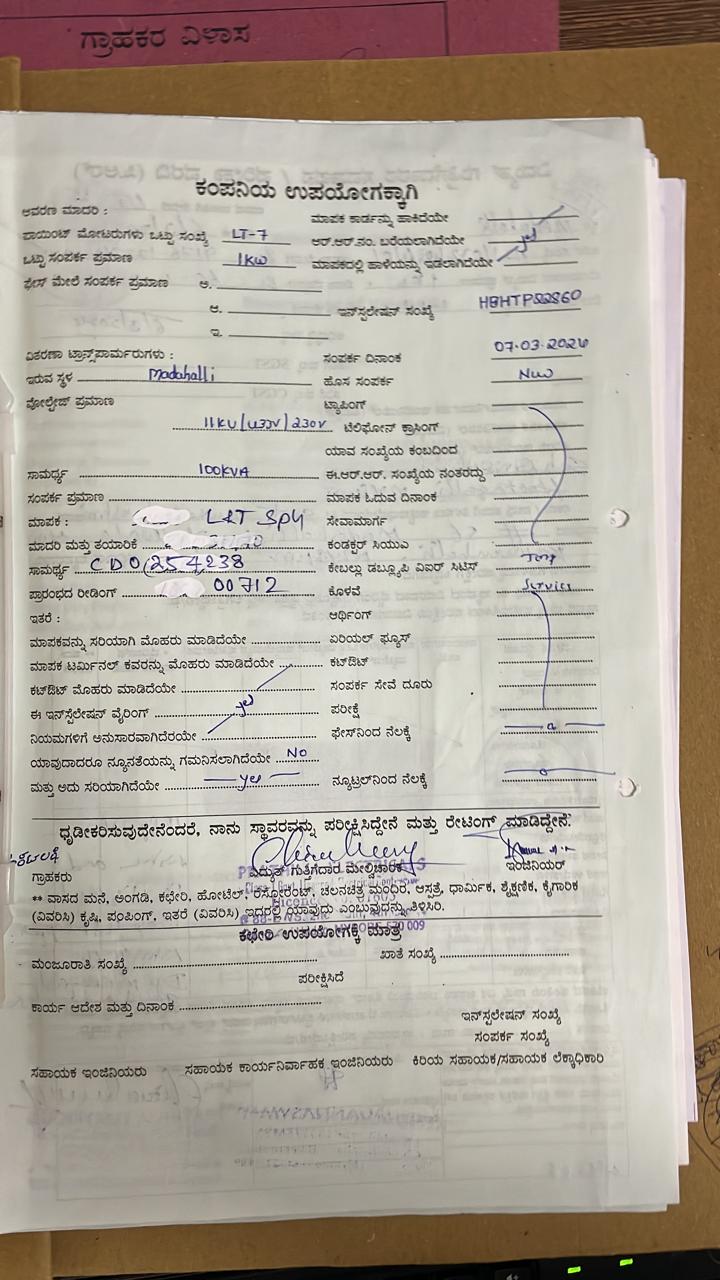 ಗ್ರಾಹಕರ ವಿಳಾಸ
ಕಂಪನಿಯ ಉಪಯೋಗಕ್ಕಾಗಿ
ಆವರಣ ಮಾದರಿ : ಮಾಪಕ ಕಾರ್ಡನ್ನು ಹಾಕಿದೆಯೇ
ಪಾಯಿಂಟ್ ಮೋಟರುಗಳು ಒಟ್ಟು ಸಂಖ್ಯೆ LT-7 ಆರ್.ಆರ್.ನಂ. ಬರೆಯಲಾಗಿದೆಯೇ
ಒಟ್ಟು ಸಂಪರ್ಕ ಪ್ರಮಾಣ 1KW ಮಾಪಕದಲ್ಲಿ ಹಾಳೆಯನ್ನು ಇಡಲಾಗಿದೆಯೇ yes
ಫೇಸ್ ಮೇಲೆ ಸಂಪರ್ಕ ಪ್ರಮಾಣ ಅ.
ಆ. ಇನ್‌ಸ್ಟಲೇಷನ್ ಸಂಖ್ಯೆ HBHTP82860
ಇ.
ವಿತರಣಾ ಟ್ರಾನ್ಸ್‌ಪಾರ್ಮರುಗಳು : ಸಂಪರ್ಕ ದಿನಾಂಕ 07.03.2024
ಇರುವ ಸ್ಥಳ Madahalli ಹೊಸ ಸಂಪರ್ಕ New
ವೋಲ್ಟೇಜ್ ಪ್ರಮಾಣ ಟ್ಯಾಪಿಂಗ್
11KV/433V/230V ಟೆಲಿಫೋನ್ ಕ್ರಾಸಿಂಗ್
ಯಾವ ಸಂಖ್ಯೆಯ ಕಂಬದಿಂದ
ಸಾಮರ್ಥ್ಯ 100KVA ಈ.ಆರ್.ಆರ್. ಸಂಖ್ಯೆಯ ನಂತರದ್ದು
ಸಂಪರ್ಕ ಪ್ರಮಾಣ ಮಾಪಕ ಓದುವ ದಿನಾಂಕ
ಮಾಪಕ : L&T Sph ಸೇವಾಮಾರ್ಗ
ಮಾದರಿ ಮತ್ತು ತಯಾರಿಕೆ ಕಂಡಕ್ಟರ್ ಸಿಯುಎ
ಸಾಮರ್ಥ್ಯ CDO(254238 ಕೇಬಲ್ಲು ಡಬ್ಲ್ಯೂಪಿ ವಿಐರ್ ಸಿಟಿಸ್ Temp
ಪ್ರಾರಂಭದ ರೀಡಿಂಗ್ 00712 ಕೊಳವೆ Service
ಇತರೆ : ಅರ್ಥಿಂಗ್
ಮಾಪಕವನ್ನು ಸರಿಯಾಗಿ ಮೊಹರು ಮಾಡಿದೆಯೇ ಏರಿಯಲ್ ಫ್ಯೂಸ್
ಮಾಪಕ ಟರ್ಮಿನಲ್ ಕವರನ್ನು ಮೊಹರು ಮಾಡಿದೆಯೇ ಕಟ್‌ಔಟ್
ಕಟ್‌ಔಟ್ ಮೊಹರು ಮಾಡಿದೆಯೇ ಸಂಪರ್ಕ ಸೇವೆ ದೂರು
ಈ ಇನ್‌ಸ್ಪೆಲೇಷನ್ ವೈರಿಂಗ್ yes ಪರೀಕ್ಷೆ
ನಿಯಮಗಳಿಗೆ ಅನುಸಾರವಾಗಿದೆರಯೇ ಫೇಸ್‌ನಿಂದ ನೆಲಕ್ಕೆ
ಯಾವುದಾದರೂ ನ್ಯೂನತೆಯನ್ನು ಗಮನಿಸಲಾಗಿದೆಯೇ NO
ಮತ್ತು ಅದು ಸರಿಯಾಗಿದೆಯೇ yes ನ್ಯೂಟ್ರಲ್‌ನಿಂದ ನೆಲಕ್ಕೆ
ಧೃಡೀಕರಿಸುವುದೇನೆಂದರೆ, ನಾನು ಸ್ಥಾವರವನ್ನು ಪರೀಕ್ಷಿಸಿದ್ದೇನೆ ಮತ್ತು ರೇಟಿಂಗ್ ಮಾಡಿದ್ದೇನೆ:
ಗ್ರಾಹಕರು ವಿದ್ಯುತ್ ಗುತ್ತಿಗೆದಾರ ಮೇಲ್ವಿಚಾರಕ ಇಂಜಿನಿಯರ್
** ವಾಸದ ಮನೆ, ಅಂಗಡಿ, ಕಛೇರಿ, ಹೋಟೆಲ್, ರೆಸ್ಟೋರೆಂಟ್, ಚಲನಚಿತ್ರ ಮಂಧಿರ, ಆಸ್ಪತ್ರೆ, ಧಾರ್ಮಿಕ, ಶೈಕ್ಷಣಿಕ, ಕೈಗಾರಿಕೆ
(ವಿವರಿಸಿ) ಕೃಷಿ, ಪಂಪಿಂಗ್, ಇತರೆ (ವಿವರಿಸಿ) ಇದರಲ್ಲಿ ಯಾವುದು ಎಂಬುವುದನ್ನು ತಿಳಿಸಿರಿ.
570 009
ಕಛೇರಿ ಉಪಯೋಗಕ್ಕೆ ಮಾತ್ರ
ಮಂಜೂರಾತಿ ಸಂಖ್ಯೆ ಖಾತೆ ಸಂಖ್ಯೆ
ಪರೀಕ್ಷಿಸಿದೆ
ಕಾರ್ಯ ಆದೇಶ ಮತ್ತು ದಿನಾಂಕ
ಇನ್‌ಸ್ಪಲೇಷನ್ ಸಂಖ್ಯೆ
ಸಂಪರ್ಕ ಸಂಖ್ಯೆ
ಸಹಾಯಕ ಇಂಜಿನಿಯರು ಸಹಾಯಕ ಕಾರ್ಯನಿರ್ವಾಹಕ ಇಂಜಿನಿಯರು ಕಿರಿಯ ಸಹಾಯಕ/ಸಹಾಯಕ ಲೆಕ್ಕಾಧಿಕಾರಿ